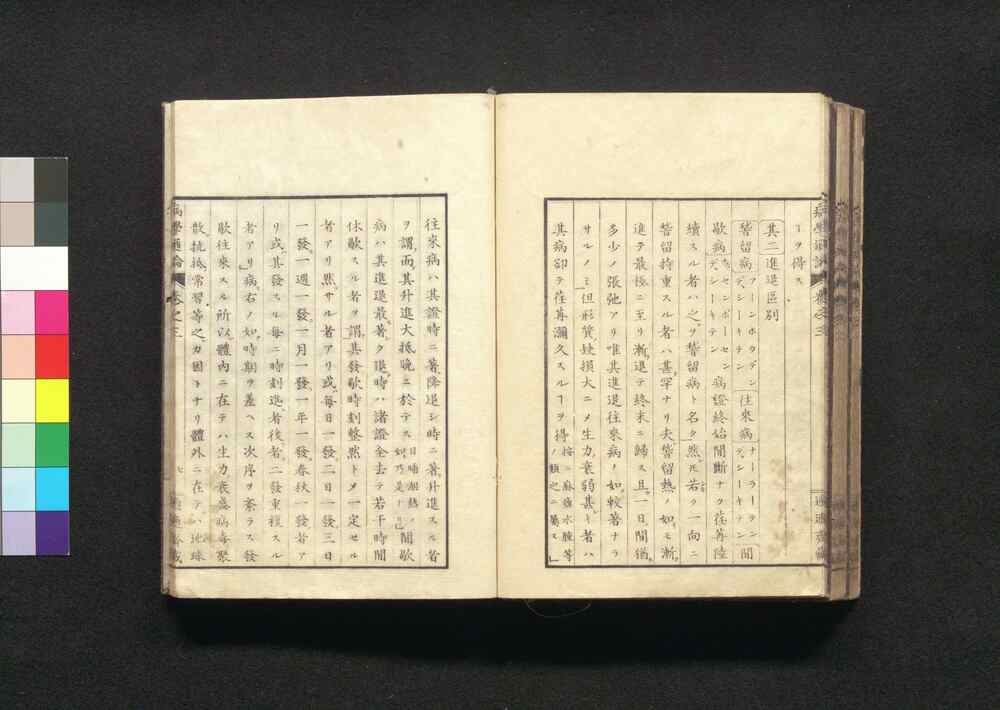 ヿヲ得ス
其二進退區別
稽留病 アーンホウデンデシーキテン 往來病 ナーラーテンデシーキテン 間
歇病 セッセンポーセンデシーキテン 病證終始間斷ナク荏苒陸
續スル者ハ之ヲ稽留病ト名ク然モ若ク一向ニ
稽留持重スル者ハ甚罕ナリ夫稽留熱ノ如モ漸
進テ最極ニ至リ漸退テ終末ニ歸ス且一日間猶
多少ノ張弛アリ唯其進退往來病ノ如較著ナラ
サルノミ但形質缺損大ニメ生力衰弱甚キ者ハ
其病却テ荏苒瀰久スルヿヲ得 按ニ麻痺水腫等ノ類之ニ屬ス
病學通論 卷之三
往來病ハ其證時ニ著降退シ時ニ著升進スル者
ヲ謂而其升進大抵晚ニ於テス 日晡潮熱ノ如乃是ナリ 間歇
病ハ其進退最著ク退時ハ諸證全去テ若干時間
休歇スル者ヲ謂其發歇時刻整然トメ一定セル
者アリ然サル者アリ或毎日一發二日一發三日
一發一週一發一月一發一年一發春秋一發者ア
リ或其發スル毎ニ時刻進者後者二發重複スル
者アリ病右ノ如時期ヲ差ヘス次序ヲ紊ラス發
歇往來スル所以體內ニ在テハ生力衰盛病毒聚
散抗抵常習等之カ因トナリ體外ニ在テハ地球
病學通論 卷之三